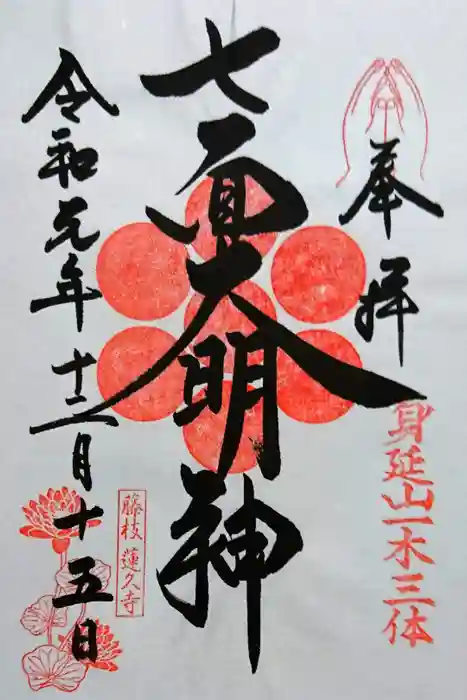 奉拝
身延山一木三体
七面大明神
藤枝 蓮久寺
令和元年十二月十五日